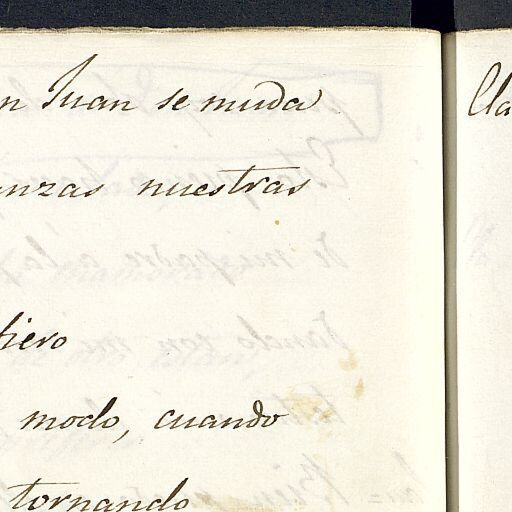 n Juan se muda
anzas nuestras
fiero
modo, cuando
tornando
Cla